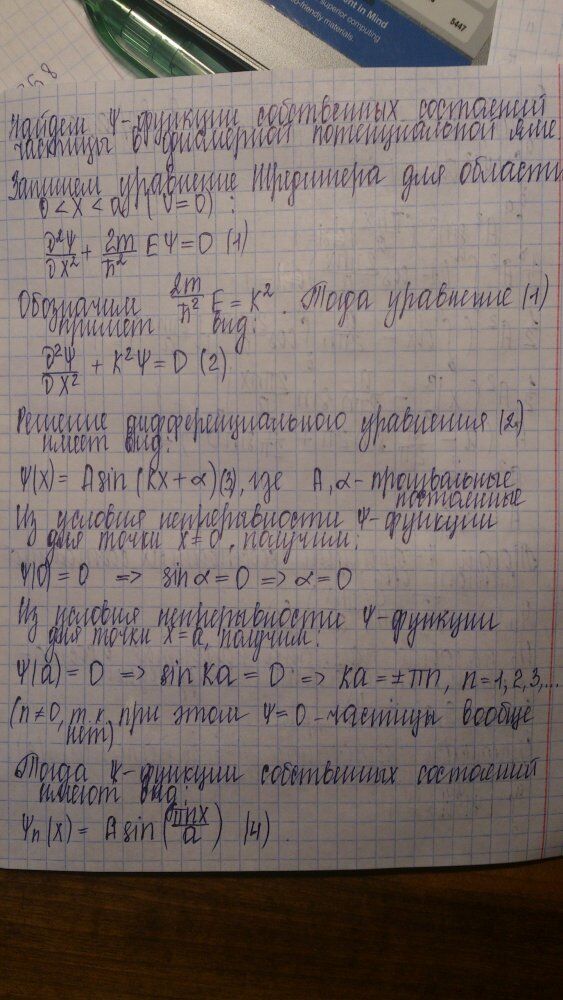 ent in Mind
superior computing
o-friendly materials.
5447
Найдем Ψ-функции собственных состояний
частицы в одномерной потенциальной яме
Запишем уравнение Шредингера для области
0 < x < a (U=0):
∂²Ψ/∂x² + 2m/ħ² EΨ = 0 (1)
Обозначим 2m/ħ² E = k². Тогда уравнение (1)
примет вид:
∂²Ψ/∂x² + k²Ψ = 0 (2)
Решение дифференциального уравнения (2)
имеет вид:
Ψ(x) = A sin (kx + α) (3), где A, α - произвальные
постоянные
Из условия непрерывности Ψ-функции
для точки x = 0, получим:
Ψ(0) = 0 => sin α = 0 => α = 0
Из условия непрерывности Ψ-функции
для точки x = a, получим:
Ψ(a) = 0 => sin ka = 0 => ka = ±πn, n = 1, 2, 3, ...
(n ≠ 0, т.к. при этом Ψ = 0 - частицы вообще
нет)
Тогда Ψ-функции собственных состояний
имеют вид:
Ψn(x) = A sin (πnx/a) (4).